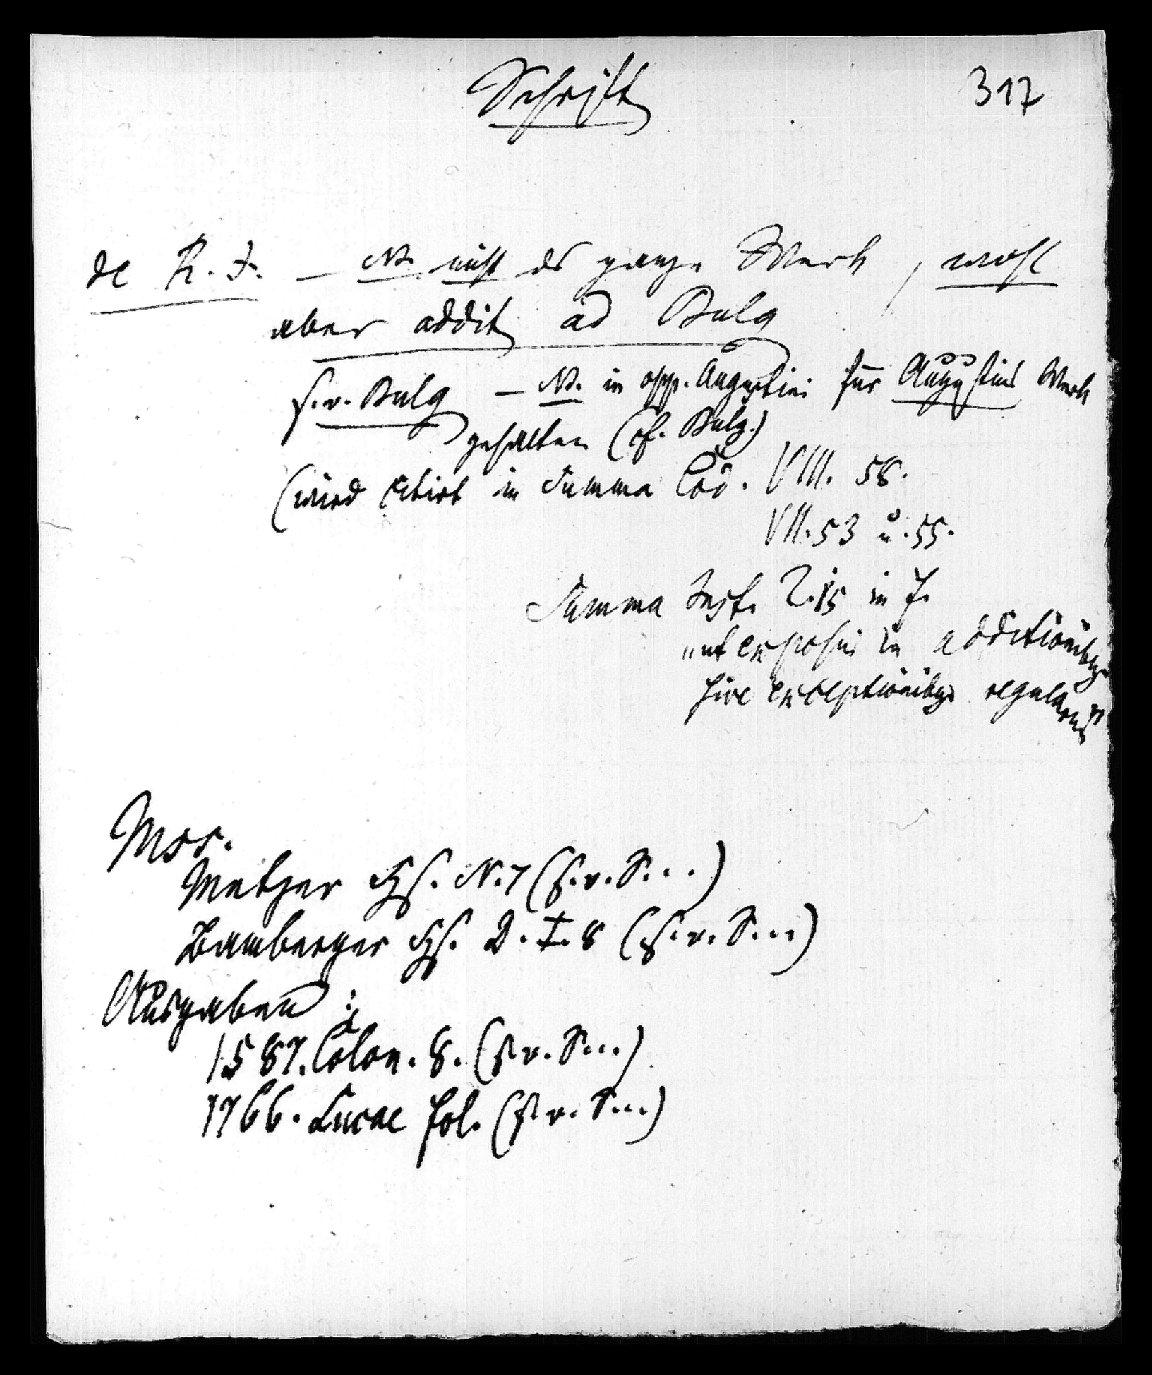 Schrift 317
de R. J. — NB. nicht das ganze Werk, wohl
aber addit ad Bulg
s. v. Bulg — NB. in opp. Augustini für Augustins Werk
gehalten (cf. Bulg.)
(wird citirt in Summa Cod. VIII. 58.
VII. 53 u. 55.
Summa Inst. 2.15 in f.
„ut exposui in additionibus
sive exceptionibus regularum“
Mss.
Metzer Hs. N. 7 (s. v. S...)
Bamberger Hs. D. I. 8 (s. v. S...)
Ausgaben:
1587. Colon. 8. (s. v. S...)
1766. Lucae fol. (s. v. S...)